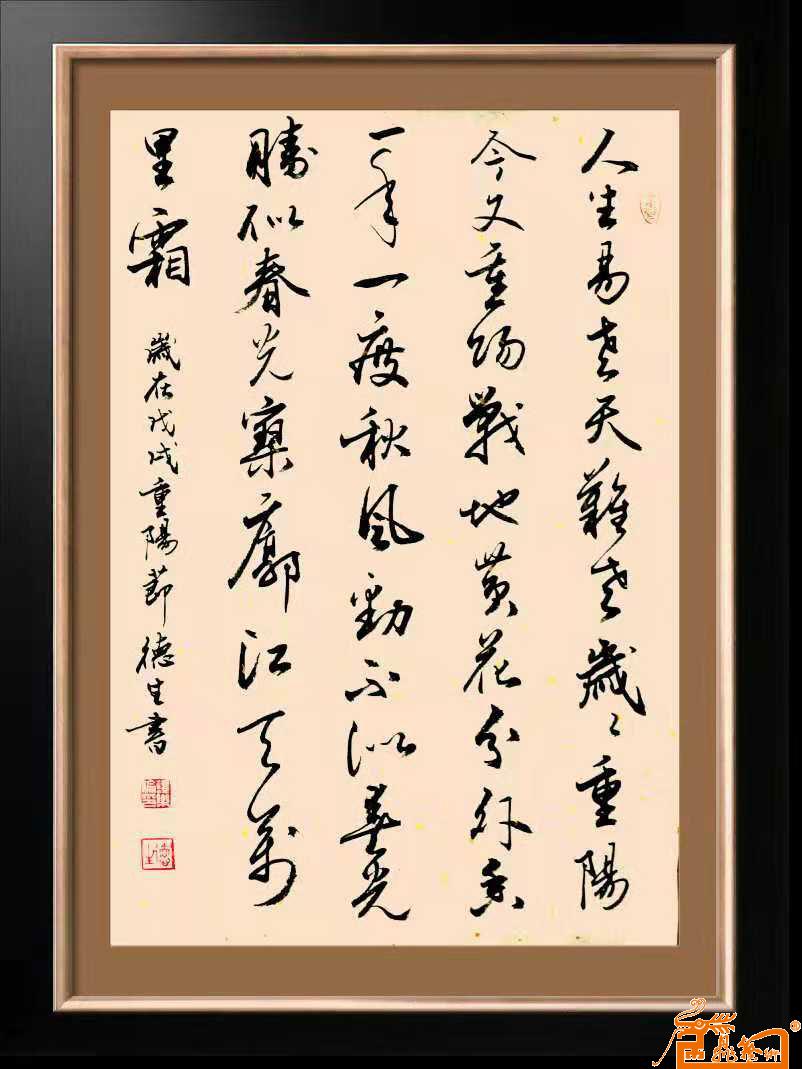 人生易老天難老歲々重陽
今又重陽戰地黄花分外香
一年一度秋風勁不似春光
勝似春光寥廓江天萬
里霜
歲在戊戌重陽節德生書